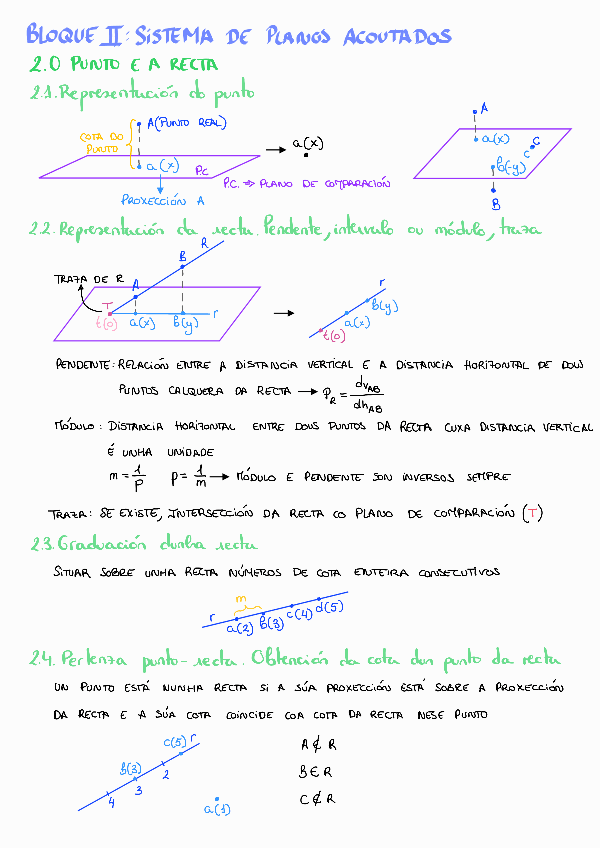 BLOQUE II: SISTEMA DE PLANOS ACOUTADOS
2.0 PUNTO E A RECTA
2.1. Representación do punto
A(PUNTO REAL)
COTA DO
PUNTO
a(x)
P.C
PROXECCIÓN A
a(x)
P.C. ⇒ PLANO DE COMPARACIÓN
A
a(x)
c C
b(-y)
B
2.2. Representación da recta. Pendente, intervalo ou módulo, traza
R
B
TRAZA DE R
A
T
r
t(0) a(x) b(y)
r
b(y)
a(x)
t(0)
PENDENTE: RELACIÓN ENTRE A DISTANCIA VERTICAL E A DISTANCIA HORIZONTAL DE DOUS
PUNTOS CALQUERA DA RECTA → P_R = dv_AB / dh_AB
MÓDULO: DISTANCIA HORIZONTAL ENTRE DOUS PUNTOS DA RECTA CUXA DISTANCIA VERTICAL
É UNHA UNIDADE
m = 1/p p = 1/m → MÓDULO E PENDENTE SON INVERSOS SEMPRE
TRAZA: SE EXISTE, INTERSECCIÓN DA RECTA CO PLANO DE COMPARACIÓN (T)
2.3. Graduación dunha recta
SITUAR SOBRE UNHA RECTA NÚMEROS DE COTA ENTEIRA CONSECUTIVOS
m
r a(2) b(3) c(4) d(5)
2.4. Pertenza punto-recta. Obtención da cota dun punto da recta
UN PUNTO ESTÁ NUNHA RECTA SI A SÚA PROXECCIÓN ESTÁ SOBRE A PROXECCIÓN
DA RECTA E A SÚA COTA COINCIDE COA COTA DA RECTA NESE PUNTO
c(5) r
b(3)
2
3
4
a(1)
A ∉ R
B ∈ R
C ∉ R